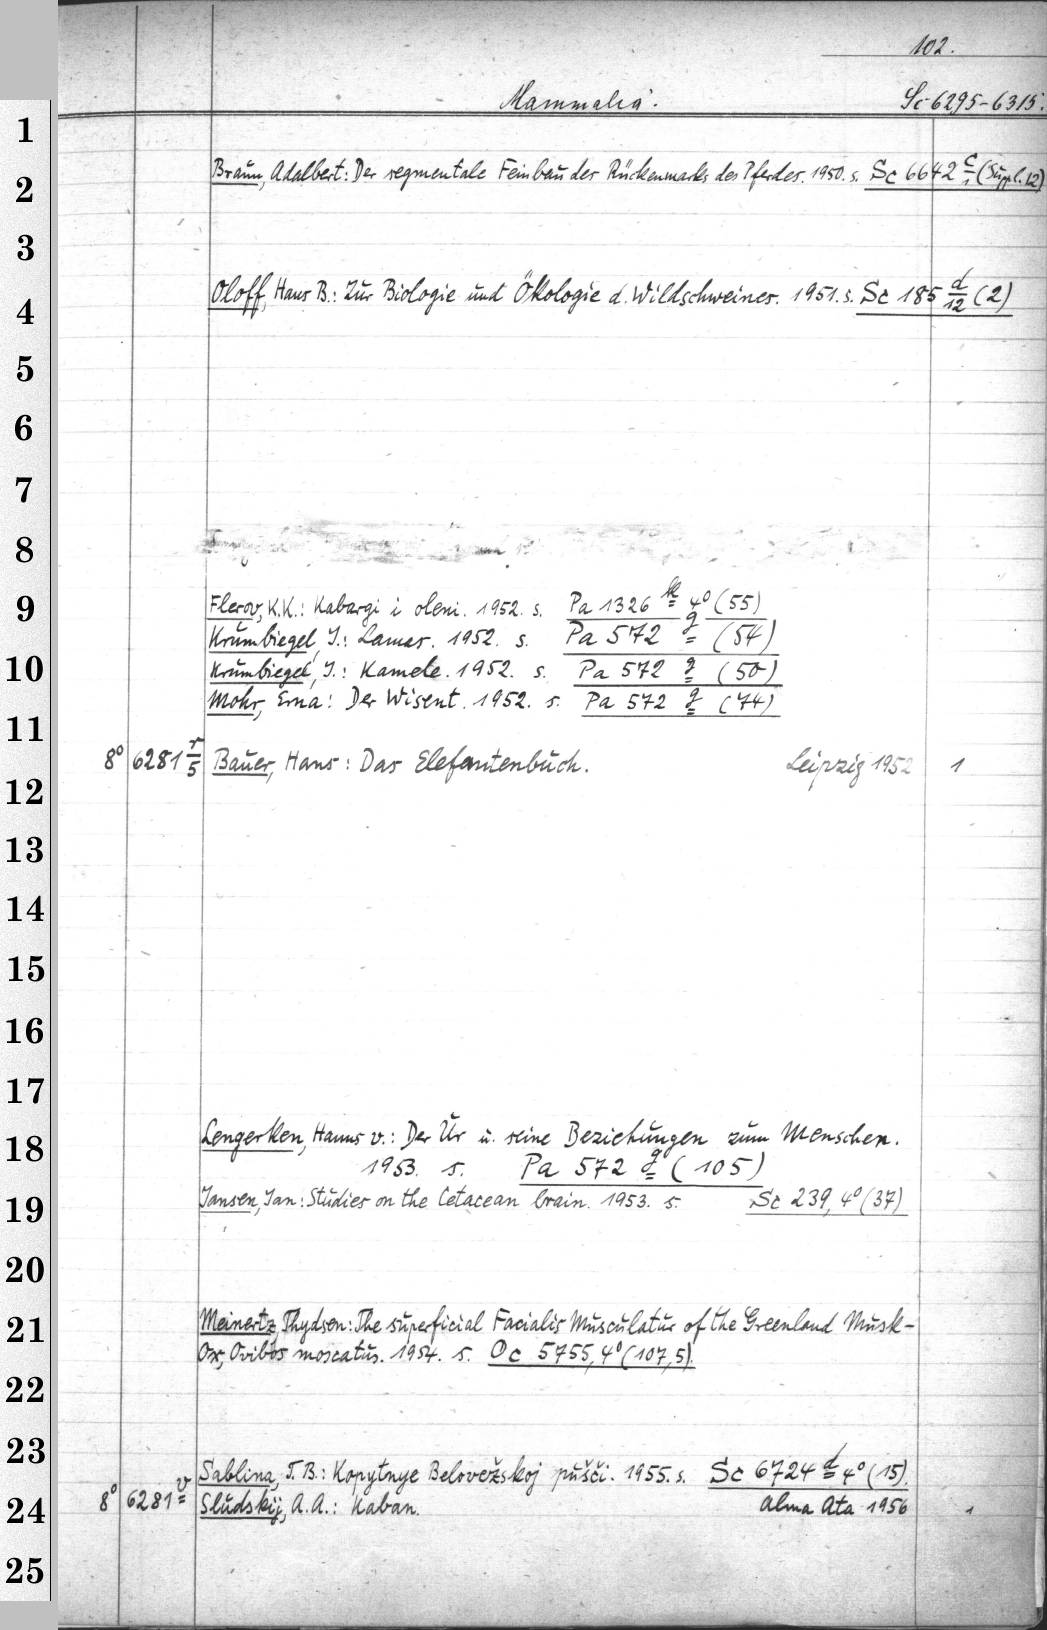 102.
Mammalia. Sc 6295-6315.
1
2 Braun, Adalbert: Der segmentale Feinbau des Rückenmarks des Pferdes. 1950. s. Sc 6642 c/1 (Suppl. 12)
3
4 Oloff, Hans B.: Zur Biologie und Ökologie d. Wildschweines. 1951. s. Sc 185 d/12 (2)
5
6
7
8
9 Flerov, K.K.: Kabargi i oleni. 1952. s. Pa 1326 k 4° (55)
Krumbiegel, I.: Lamas. 1952. s. Pa 572 g (54)
10 Krumbiegel, I.: Kamele. 1952. s. Pa 572 g (50)
Mohr, Erna: Der Wisent. 1952. s. Pa 572 g (74)
11
8° 6281 r/5 Bauer, Hans: Das Elefantenbuch. Leipzig 1952 1
12
13
14
15
16
17
18 Lengerken, Hanns v.: Der Ur u. seine Beziehungen zum Menschen.
1953. s. Pa 572 g (105)
19 Jansen, Jan: Studies on the Cetacean brain. 1953. s. Sc 239, 4° (37)
20
21 Meinertz, Thydsen: The superficial Facialis Musculatur of the Greenland Musk-
Ox, Ovibos moscatus. 1954. s. Oc 5755, 4° (107,5).
22
23 Sablina, T.B.: Kopytnye Belovežskoj pušči. 1955. s. Sc 6724 d 4° (15).
24 8° 6281 v Sludskij, A.A.: Kaban. Alma Ata 1956 1
25